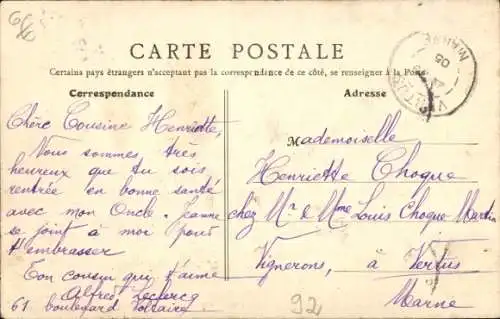 CARTE POSTALE
Certains pays étrangers n'acceptant pas la correspondance de ce côté, se renseigner à la Poste
Correspondance
Adresse
Chère Cousine Henriette,
Nous sommes très
heureux que tu sois
rentrée en bonne santé
avec mon Oncle. Jeanne
se joint à moi pour
t'embrasser
Ton cousin qui t'aime
Alfred Leclercq
61 boulevard Voltaire
Mademoiselle
Henriette Choque
chez Mr & Mme Louis Choque Martin
Vignerons, à Vertus
Marne
92
MARNE
05